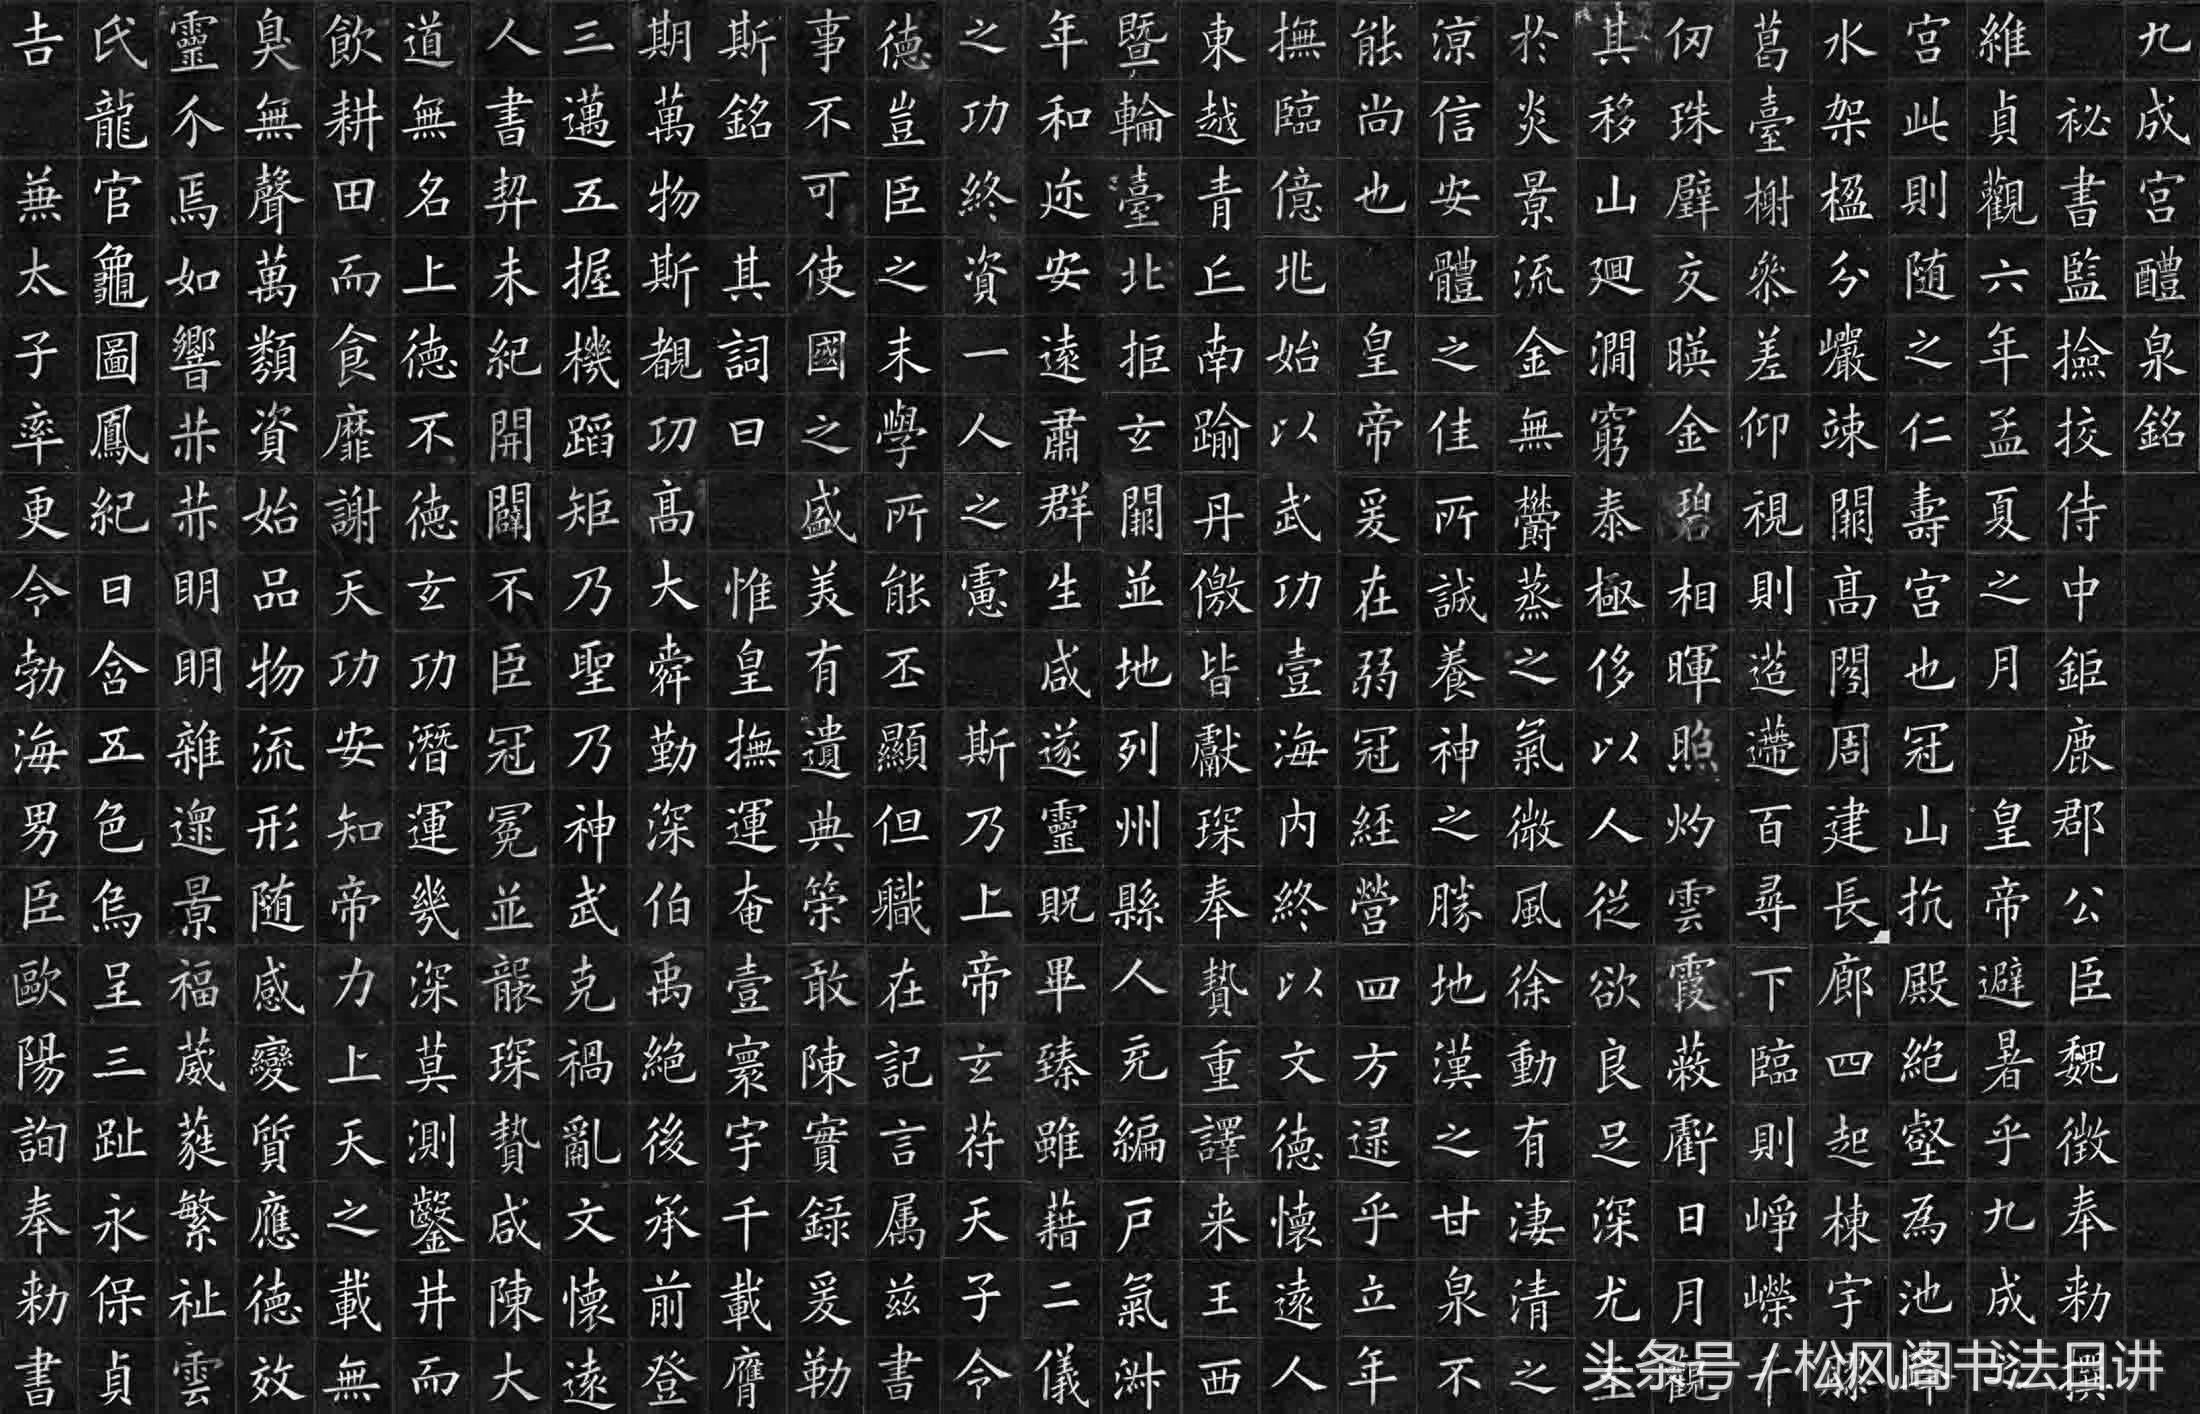 九成宮醴泉銘
祕書監撿挍侍中鉅鹿郡公臣魏徵奉勑撰
維貞觀六年孟夏之月 皇帝避暑乎九成之
宮此則随之仁壽宮也冠山抗殿絶壑為池跨
水架楹分巖竦闕高閣周建長廊四起棟宇膠
葛臺榭叅差仰視則迢遰百尋下臨則崢嶸千
仞珠璧交暎金碧相暉照灼雲霞蔽虧日月觀
其移山廻澗窮泰極侈以人從欲良足深尤至
於炎景流金無鬱蒸之氣微風徐動有淒清之
涼信安體之佳所誠養神之勝地漢之甘泉不
能尚也 皇帝爰在弱冠經營四方逮乎立年
撫臨億兆始以武功壹海內終以文德懷遠人
東越青丘南踰丹徼皆獻琛奉贄重譯来王西
暨輪臺北拒玄闕並地列州縣人充編戶氣淑
年和迩安遠肅群生咸遂靈貺畢臻雖藉二儀
之功終資一人之慮 斯乃上帝玄符天子令
德豈臣之末學所能丕顯但職在記言属茲書
事不可使國之盛美有遺典策敢陳實錄爰勒
斯銘 其詞曰 惟皇撫運奄壹寰宇千載膺
期萬物斯覩功高大舜勤深伯禹絕後承前登
三邁五握機蹈矩乃聖乃神武克禍亂文懷遠
人書契未紀開闢不臣冠冕並襲琛贄咸陳大
道無名上德不德玄功潛運幾深莫測鑿井而
飲耕田而食靡謝天功安知帝力上天之載無
臭無聲萬類資始品物流形随感變質應德效
靈介焉如響赫赫明明雜遝景福葳蕤繁祉雲
氏龍官龜圖鳳紀日含五色烏呈三趾永保貞
吉 兼太子率更令勃海男臣歐陽詢奉勑書
头条号 / 松风阁书法日讲